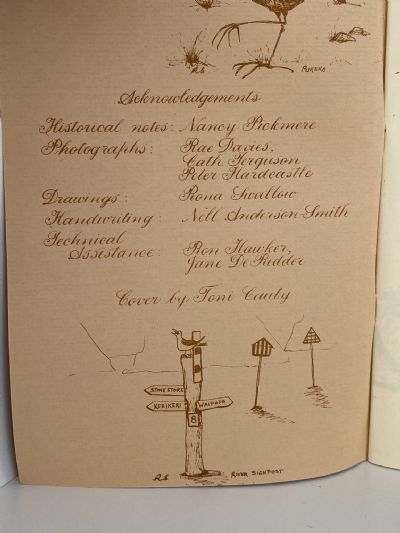 RS
PUKEKO
Acknowledgements
Historical notes: Nancy Pickmere
Photographs: Rae Davies,
Cath Ferguson
Peter Hardcastle
Drawings: Rona Swallow
Handwriting: Nell Anderson-Smith
Technical
Assistance: Ron Hawker,
Jane De Ridder
Cover by Toni Cauty
STONE STORE
KERIKERI WAIPAPA
8
RS RIVER SIGNPOST